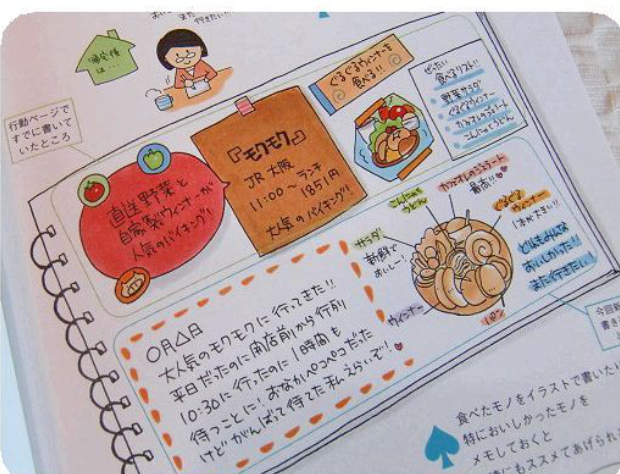 また
行きたい!!
帰宅後
は…
行動ページで
すでに書いて
いたところ
直送野菜と
自家製ウィンナーが
人気のバイキング!
『モクモク』
JR大阪
11:00～ランチ
1851円
大気のバイキング!
ぐるぐるウィンナーを
食べる!!
ぜったい
食べるリスト!!
野菜サラダ
ぐるぐるウィンナー
カフェオレのジェラート
こんにゃくうどん
〇月△日
大人気のモクモクに行ってきた!!
平日だったのに開店前から行列
10:30に行ったのに1時間も
待つことに! おなかペコペコだった
けどがんばって待てた私えらいぞ!
サラダ
新鮮で
おいしー!
こんにゃく
うどん
カフェオレのジェラート
最高!!
ぐるぐる
ウィンナー
1本が大きい!!
ウィンナー
パン
どれもみんな
おいしかった!!
また行きたい!
今回新
書き
食べたモノをイラストで書いたり
特においしかったモノを
メモしておくと
にもススメてあげられる